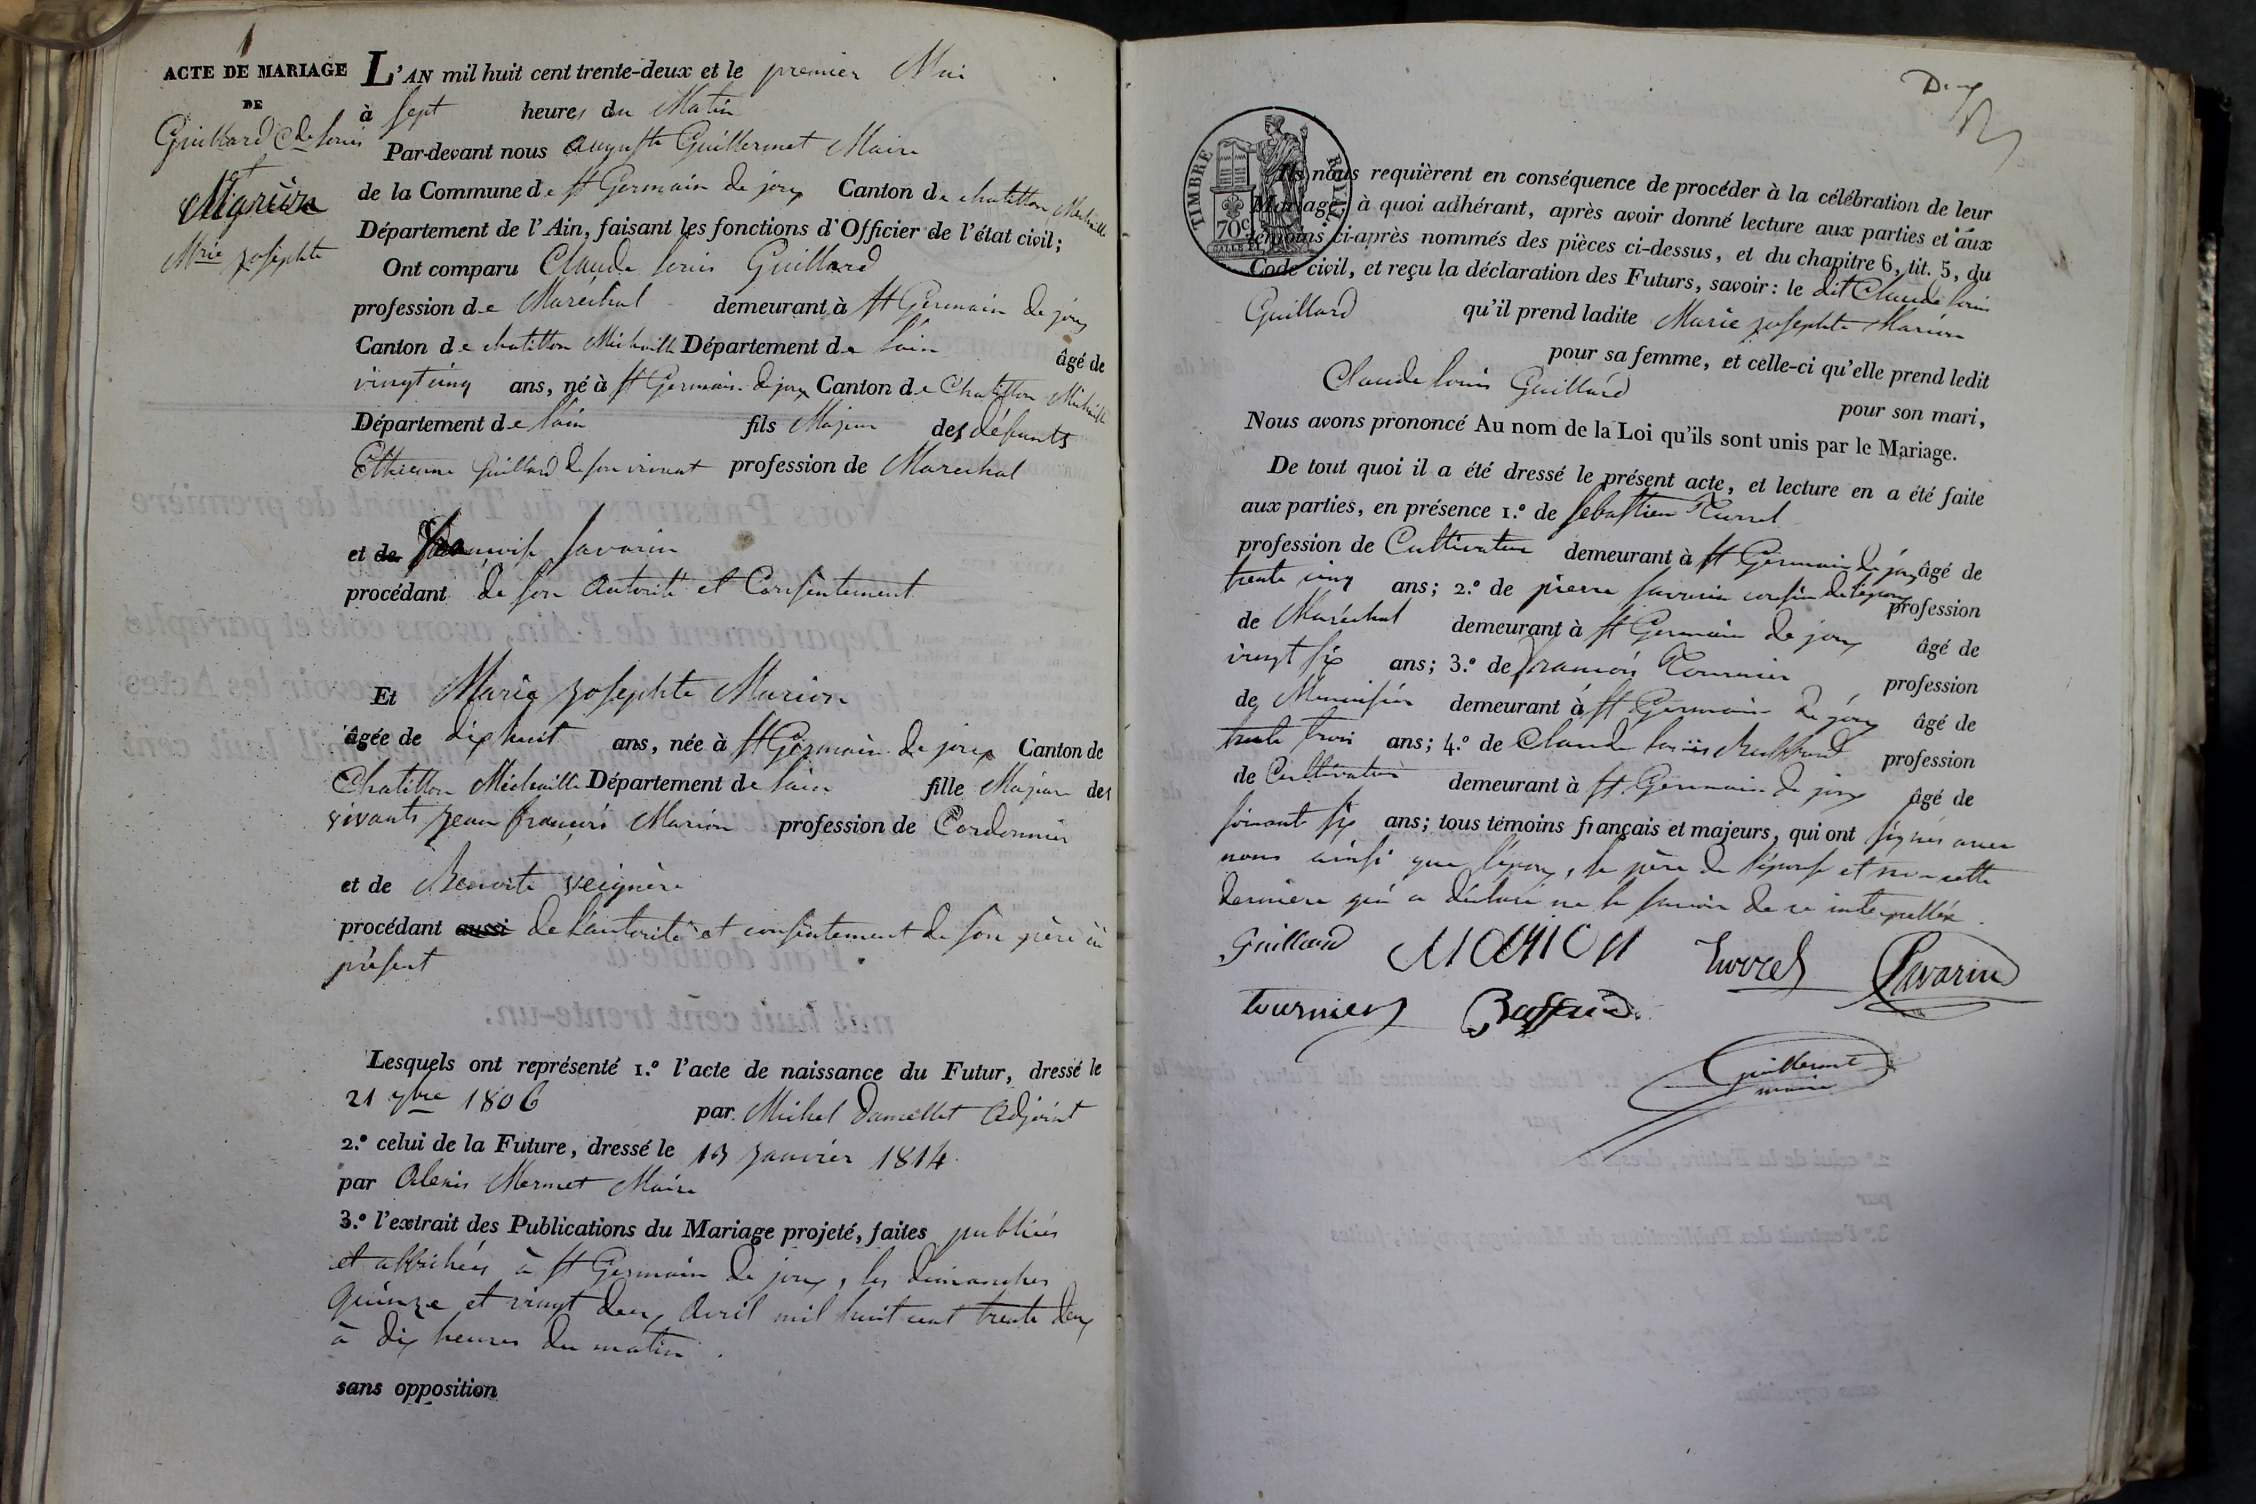 ACTE DE MARIAGE
DE
Guillard Cde Louis
et
Marion
Mrie Josephte
L'AN mil huit cent trente-deux et le premier Mai
à sept heures du Matin
Par-devant nous Auguste Guillermet Maire
de la Commune de St Germain de joux Canton de Chatillon Michaille
Département de l'Ain, faisant les fonctions d'Officier de l'état civil;
Ont comparu Claude Louis Guillard
profession de Maréchal demeurant à St Germain de joux
Canton de chatillon Michaille Département de l'ain âgé de
vingt cinq ans, né à St Germain de joux Canton de Chatillon Michaille
Département de l'ain fils Majeur des défunts
Ethienne Guillard de son vivant profession de Marechal
et de françoise Savarin
procédant de son autorité et Consentement
Et Marie Josephte Marion
âgée de dix huit ans, née à St Germain de joux Canton de
Chatillon Michaille Département de l'ain fille Majeur des
vivants Jean françois Marion profession de Cordonnier
et de Benoite
procédant aussi de l'autorité et consentement de son père ici
présent
Lesquels ont représenté 1.º l'acte de naissance du Futur, dressé le
21 1806 par Michel Adjoint
2.º celui de la Future, dressé le 13 Janvier 1814
par Alexis Mermet Maire
3.º l'extrait des Publications du Mariage projeté, faites publiées
et affichées à St Germain de joux, les dimanches
quinze et vingt deux avril mil huit cent trente deux
à dix heures du matin.
sans opposition
TIMBRE ROYAL
70c
Ils nous requièrent en conséquence de procéder à la célébration de leur
Mariage; à quoi adhérant, après avoir donné lecture aux parties et aux
témoins ci-après nommés des pièces ci-dessus, et du chapitre 6, tit. 5, du
Code civil, et reçu la déclaration des Futurs, savoir: le dit Claude Louis
Guillard qu'il prend ladite Marie Josephte Marion
pour sa femme, et celle-ci qu'elle prend ledit
Claude Louis Guillard pour son mari,
Nous avons prononcé Au nom de la Loi qu'ils sont unis par le Mariage.
De tout quoi il a été dressé le présent acte, et lecture en a été faite
aux parties, en présence 1.º de Sebastien Turrel
profession de Cultivateur demeurant à St Germain de joux âgé de
trente cinq ans; 2.º de pierre Savarin cousin de l'époux profession
de Maréchal demeurant à St Germain de joux âgé de
vingt six ans; 3.º de françois Tournier profession
de Menuisier demeurant à St Germain de joux âgé de
trente trois ans; 4.º de Claude Louis Buffard profession
de Cultivateur demeurant à St Germain de joux âgé de
soixante six ans; tous témoins français et majeurs, qui ont signés avec
nous ainsi que l'époux, le père de l'épouse et non cette
dernière qui a déclaré ne le savoir de ce interpellée.
Guillard MARION Turrel Savarin
Tournier Buffard
Guillermet
maire